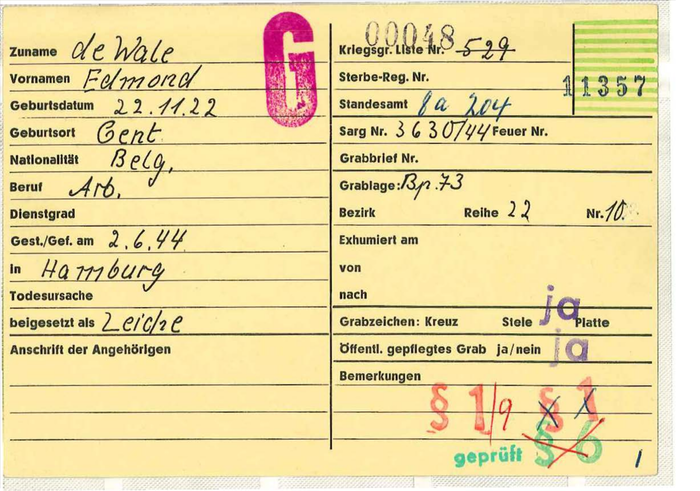 Zuname de Wale
Vornamen Edmond
Geburtsdatum 22.11.22
Geburtsort Gent
Nationalität Belg.
Beruf Arb.
Dienstgrad
Gest./Gef. am 2.6.44
in Hamburg
Todesursache
beigesetzt als Leiche
Anschrift der Angehörigen
G
00048
Kriegsgr. Liste Nr. 529
Sterbe-Reg. Nr.
11357
Standesamt 8a 204
Sarg Nr. 3630/44 Feuer Nr.
Grabbrief Nr.
Grablage: Bp. 73
Bezirk Reihe 22 Nr. 10
Exhumiert am
von
nach
ja
Grabzeichen: Kreuz Stele Platte
Öffentl. gepflegtes Grab ja/nein ja
Bemerkungen
§ 1/9 § 1
geprüft § 6
1